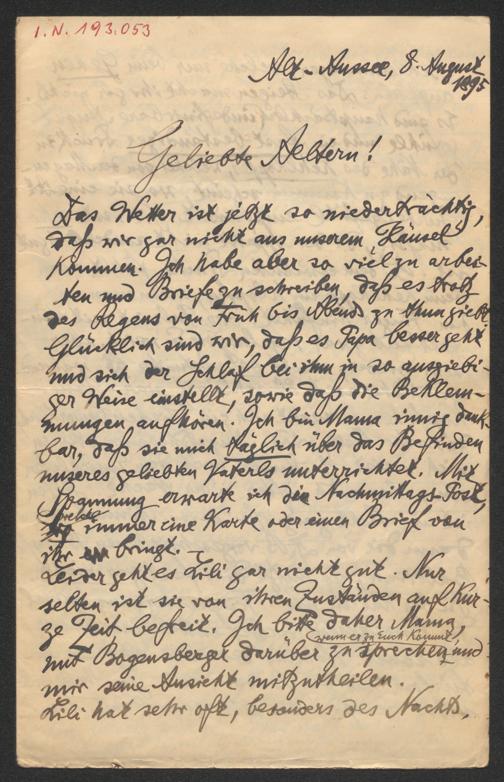 I. N. 193.053
Alt-Aussee, 8. August
1895
Geliebte Aeltern!
Das Wetter ist jetzt so niederträchtig,
daß wir gar nicht aus unserem "Häusel"
kommen. Ich habe aber so viel zu arbei-
ten und Briefe zu schreiben, daß es trotz
des Regens von Früh bis Abends zu thun giebt.
Glücklich sind wir, daß es Papa besser geht
und sich der Schlaf bei ihm in so ausgiebi-
ger Weise einstellt, sowie daß die Beklem-
mungen aufhören. Ich bin Mama innig dank-
bar, daß sie mich täglich über das Befinden
unseres geliebten Vaterls unterrichtet. Mit
Spannung erwarte ich die Nachmittags-Post,
welche
immer eine Karte oder einen Brief von
ihr bringt. –
Leider geht es Lili gar nicht gut. Nur
selten ist sie von ihren Zuständen auf kur-
ze Zeit befreit. Ich bitte daher Mama,
(wenn er zu Euch kommt)
mit Bogensberger darüber zu sprechen und
mir seine Ansicht mitzutheilen.
Lili hat sehr oft, besonders des Nachts,